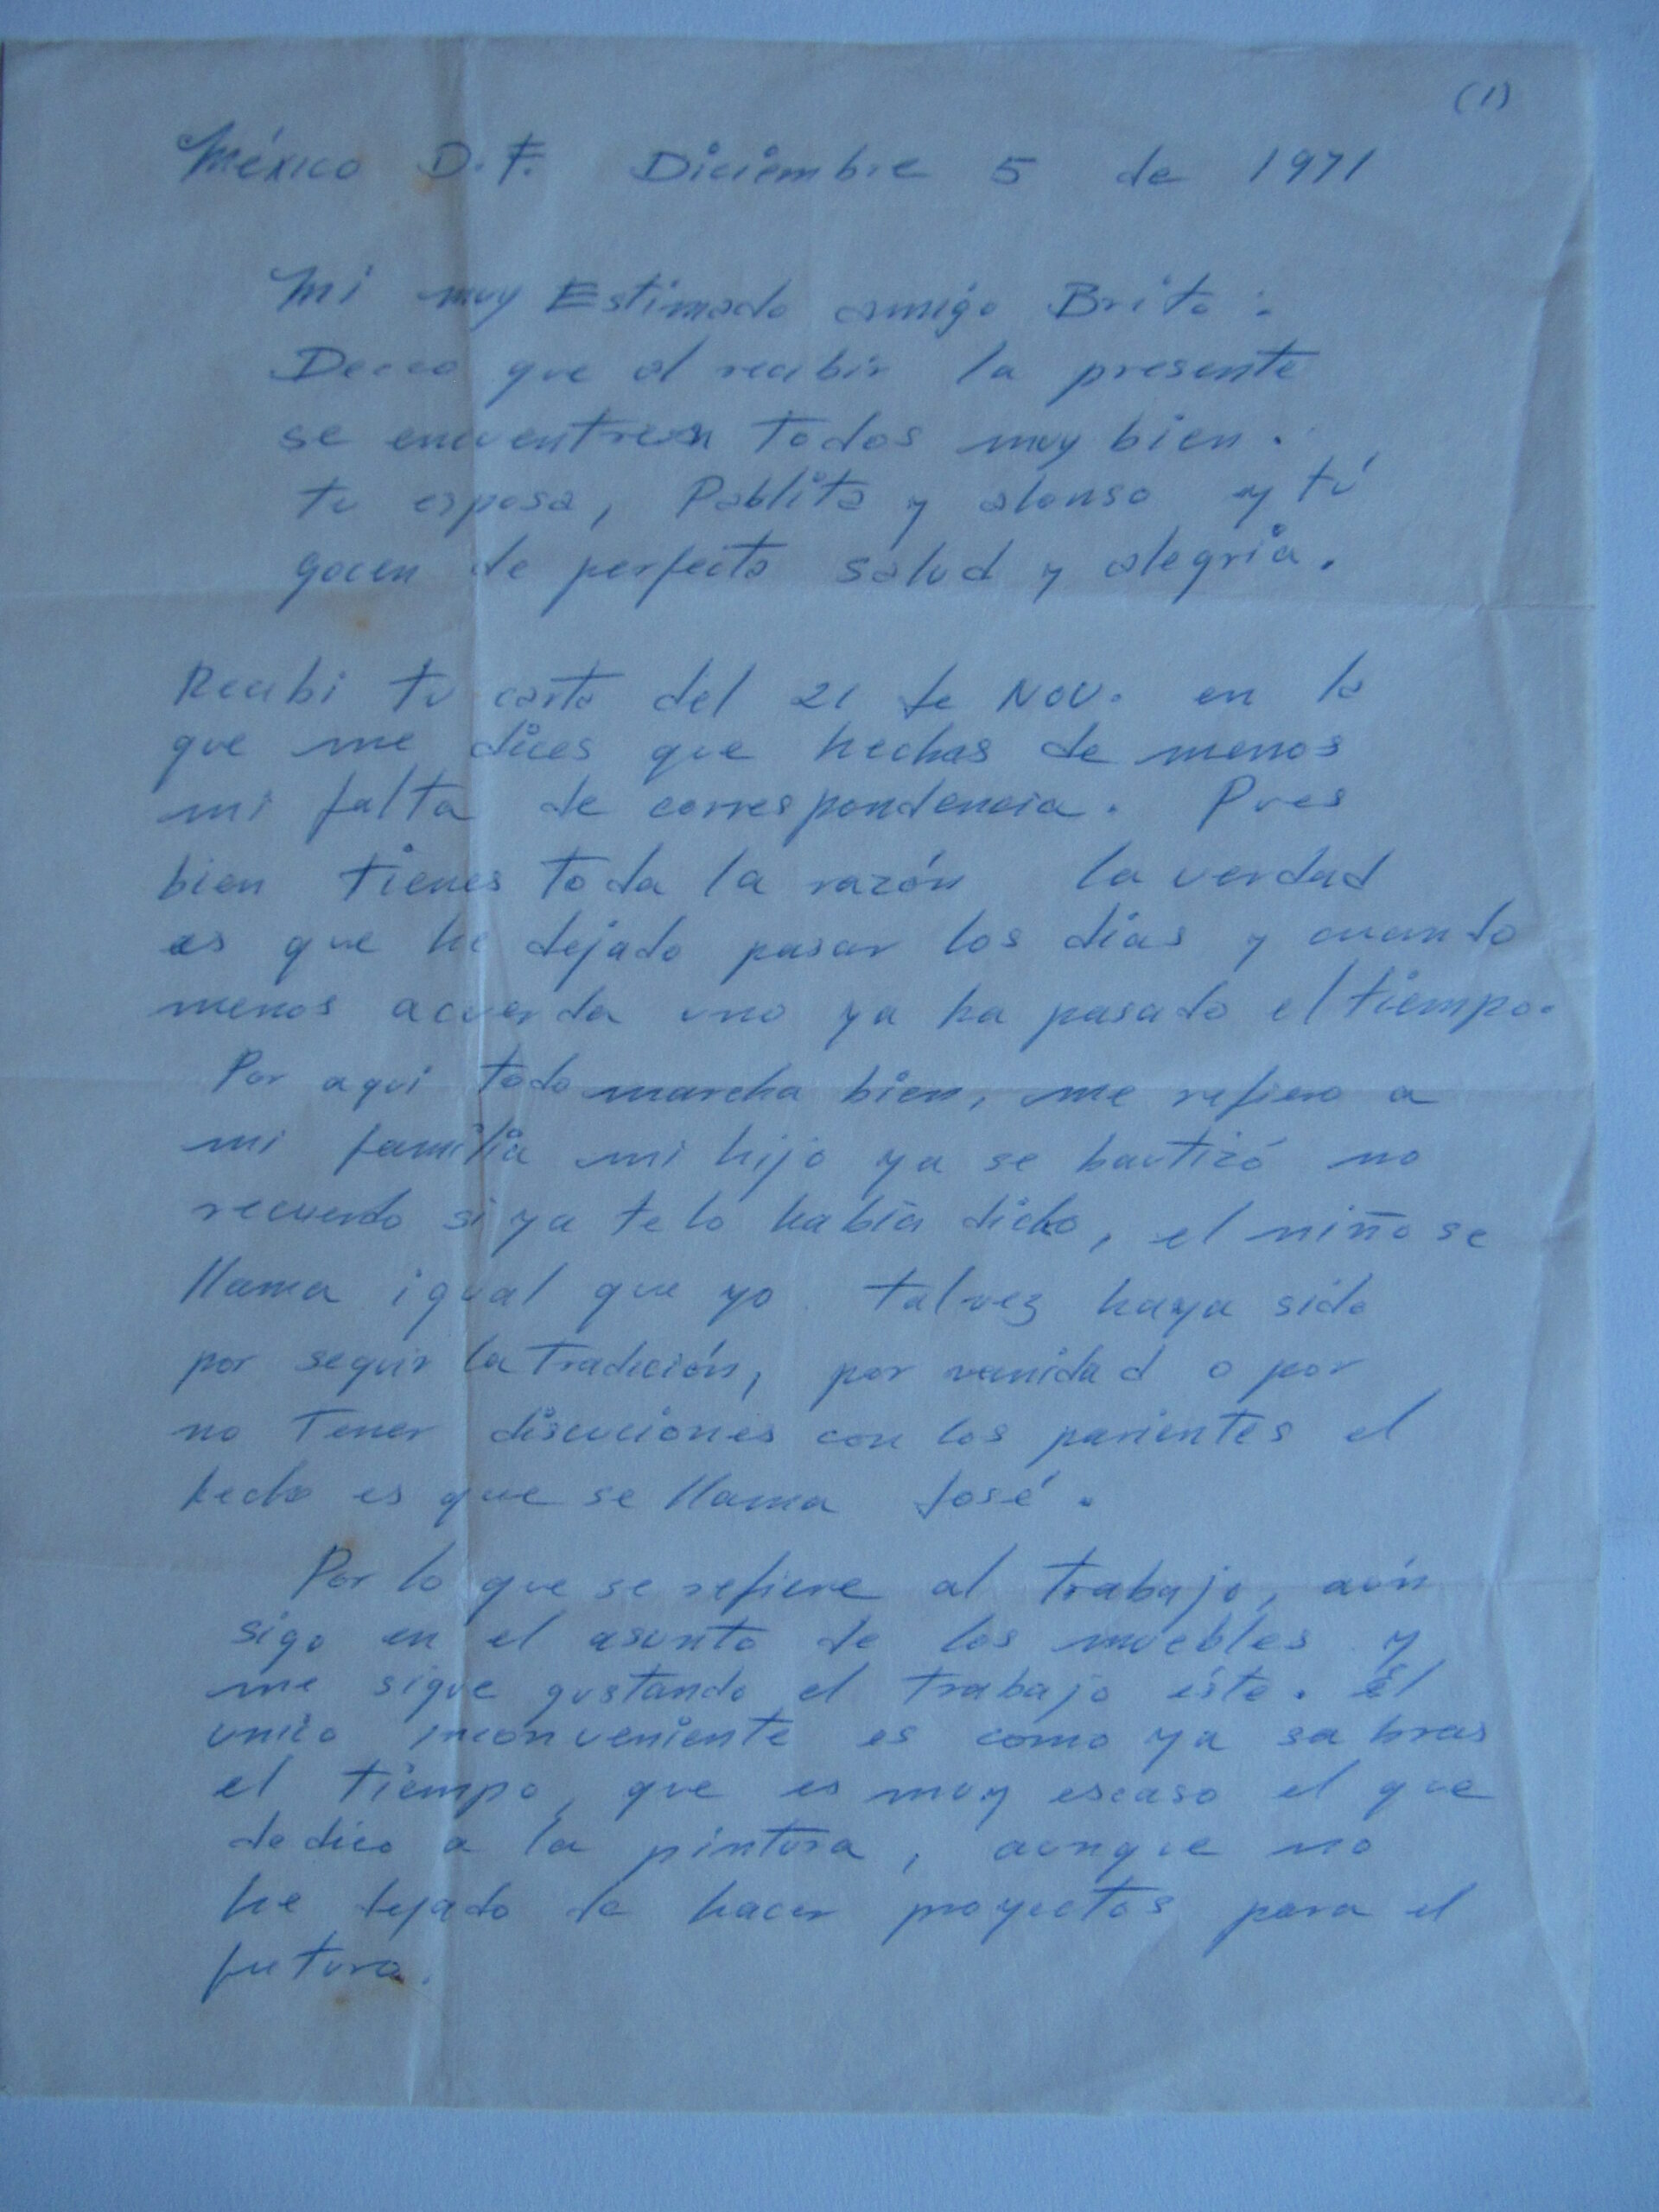 (1)
México D.F. Diciembre 5 de 1971
Mi muy Estimado amigo Brito:
Deceo que al recibir la presente
se encuentren todos muy bien.
tu esposa, Pablito y alonso y tú
gocen de perfecta salud y alegría.
Recibi tu carta del 21 de NOV. en la
que me dices que hechas de menos
mi falta de correspondencia. Pues
bien tienes toda la razón la verdad
es que he dejado pasar los días y cuando
menos acuerda uno ya ha pasado el tiempo.
Por aqui todo marcha bien, me refiero a
mi familia mi hijo ya se bautizó no
recuerdo si ya te lo había dicho, el niño se
llama igual que yo talvez haya sido
por seguir la tradición, por vanidad o por
no tener discuciones con los parientes el
hecho es que se llama José.
Por lo que se refiere al trabajo, aún
sigo en el asunto de los muebles y
me sigue gustando el trabajo éste. El
unico inconveniente es como ya sabras
el tiempo, que es muy escaso el que
dedico a la pintura, aunque no
he dejado de hacer proyectos para el
futuro.